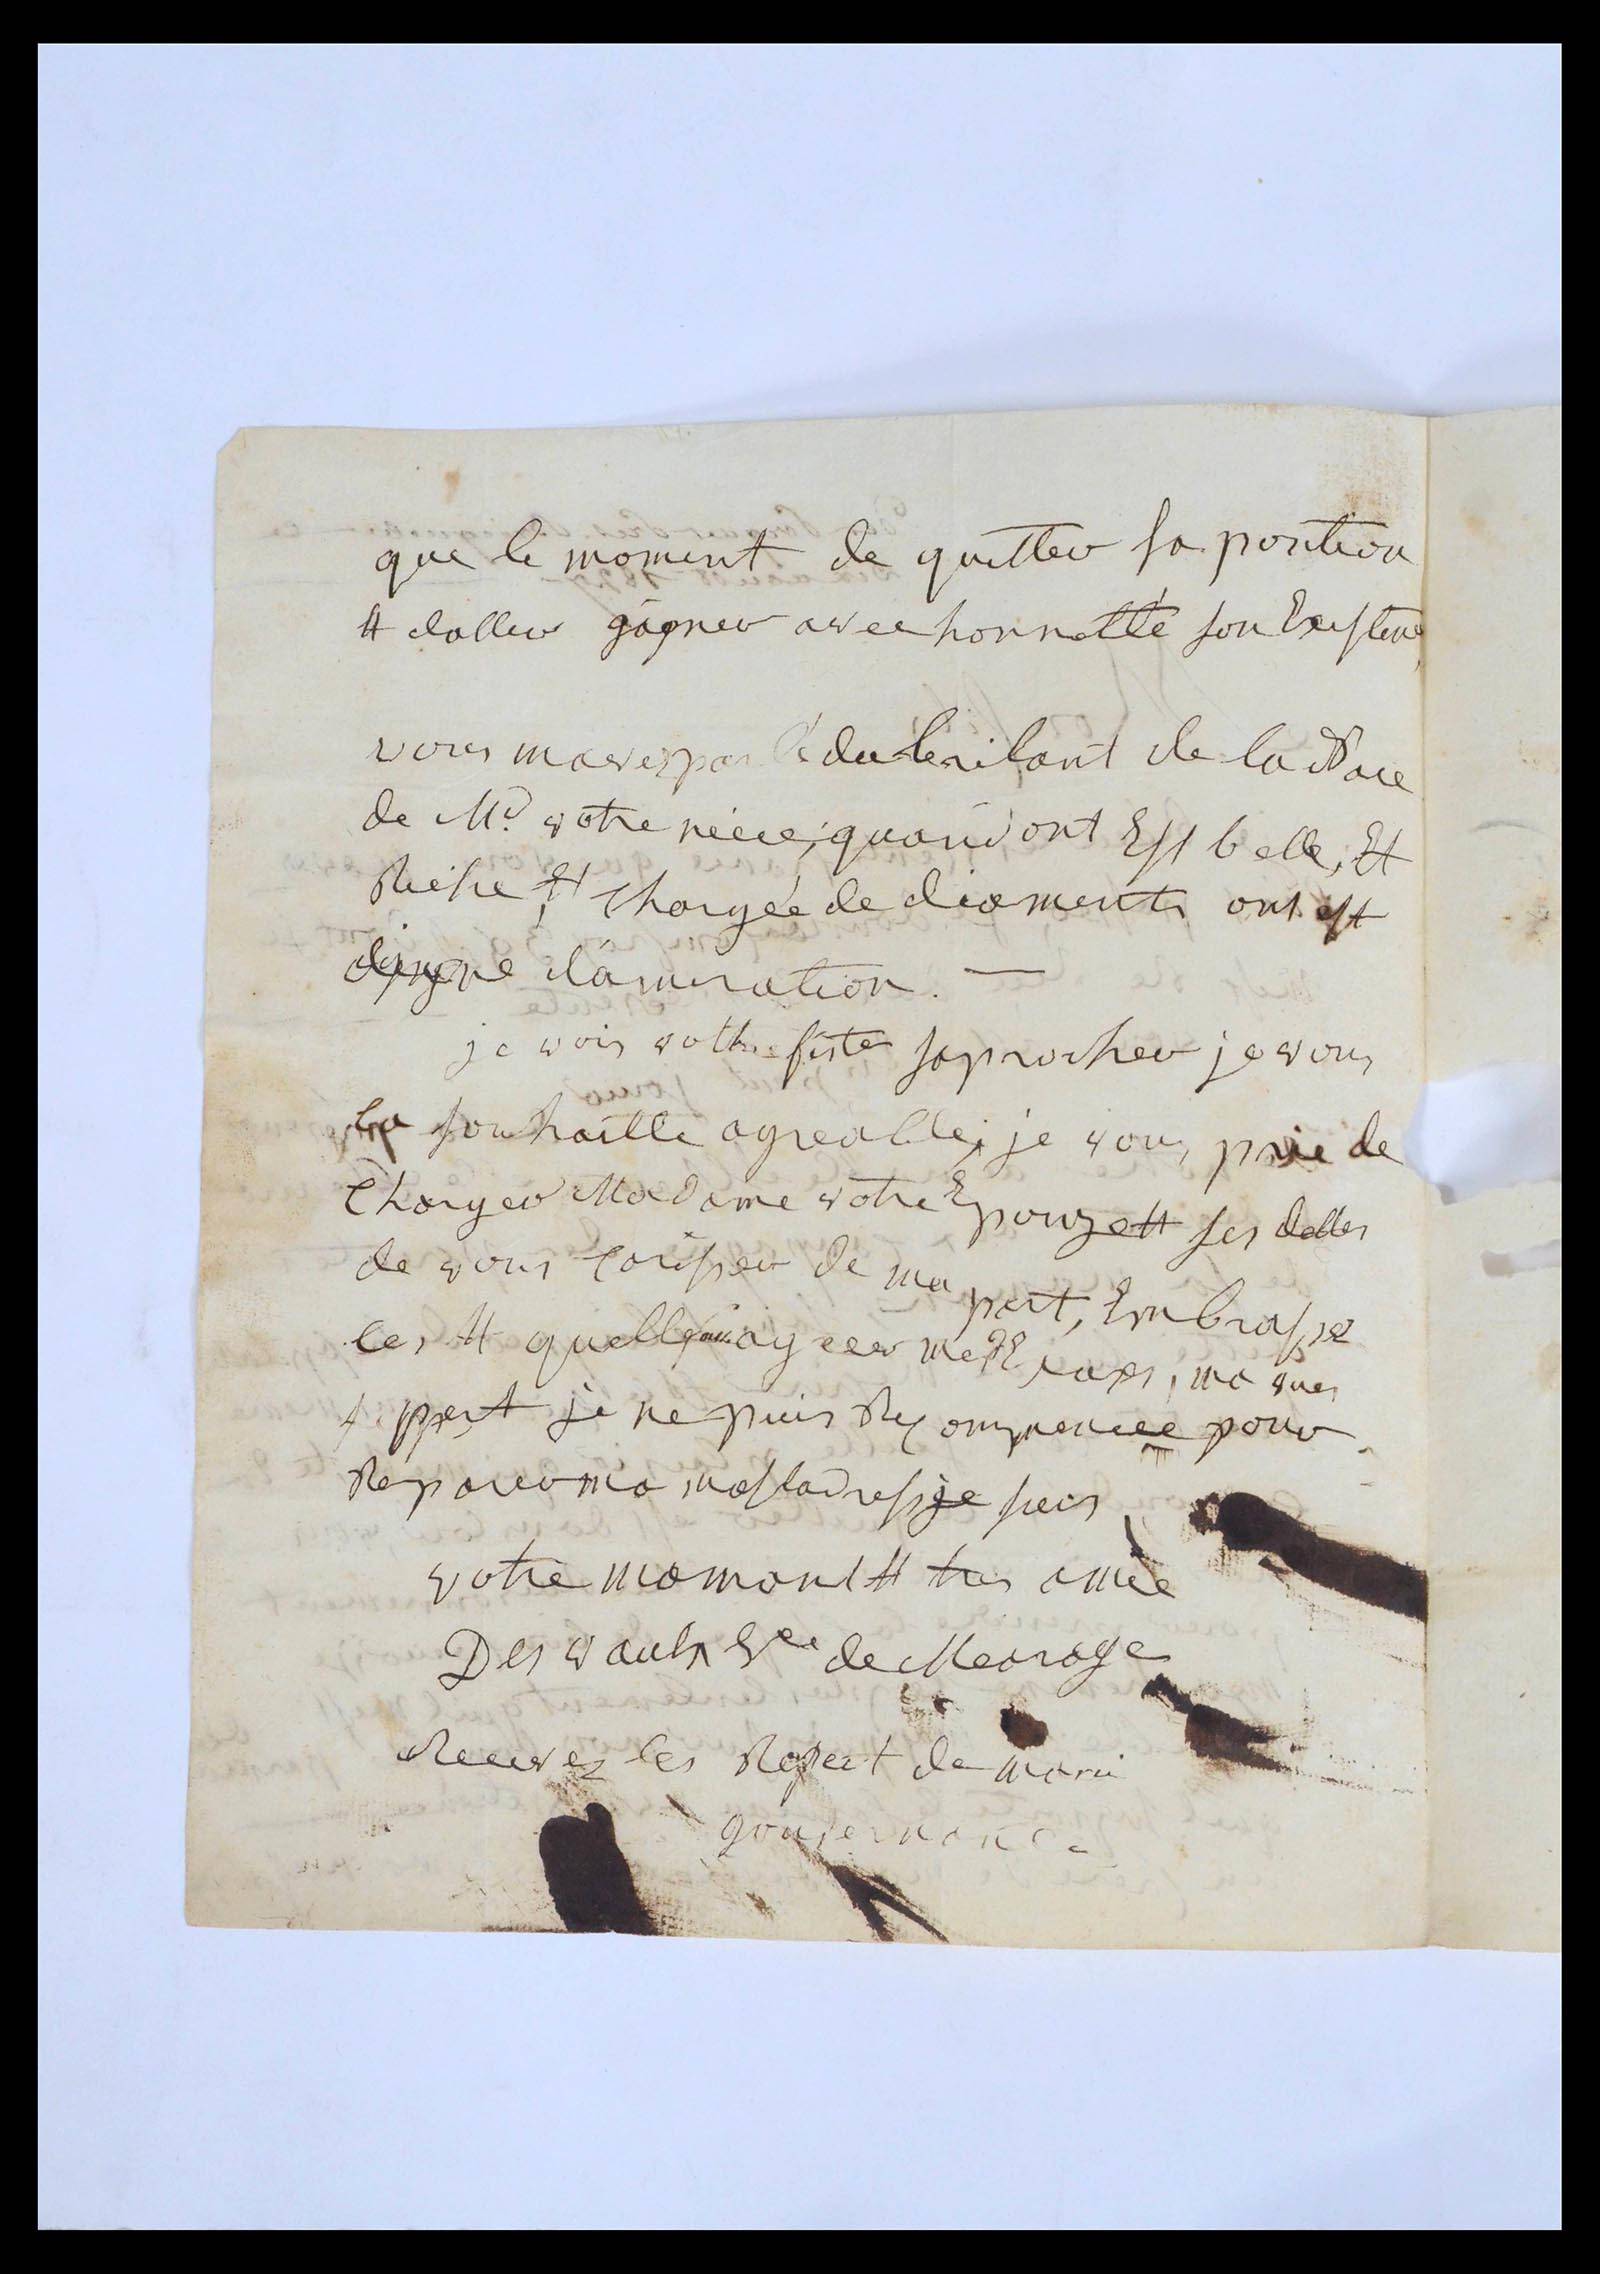 que le moment de quitter sa position
et daller gagner avec honnetté son Existence
vous mavez parlé du brilant de la Noce
de Md votre niece, quand ont Est belle, Et
Riche Et Chargée de diaments ont est
digne damiration. —
je vois votre fête saprocher je vous
la souhaitte agreable, je vous prie de
Charger Madame votre Epouze et ses delles
de vous de ma part, Embrassez
les et quelle agreer mes ma vue
je ne puis Recommencee pour
Reparer ma je suis
votre mamant et tres amie
Desvaulx Vee de Mearage
Recevez les Respect de mami
gouvernante